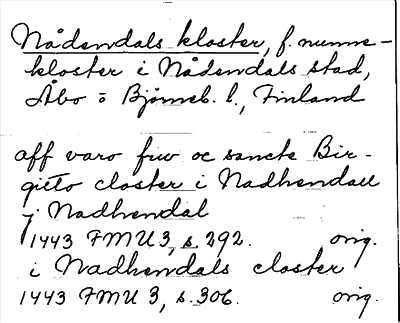 Nådendals kloster, f. nunne-
kloster i Nådendals stad,
Åbo o Björneb. l., Finland
aff varo frw oc sancte Bir-
gitto closter i Nadhendall
j Nadhendal
1443 FMU 3, s. 292. orig.
i Nadhendals closter
1443 FMU 3, s. 306. orig.